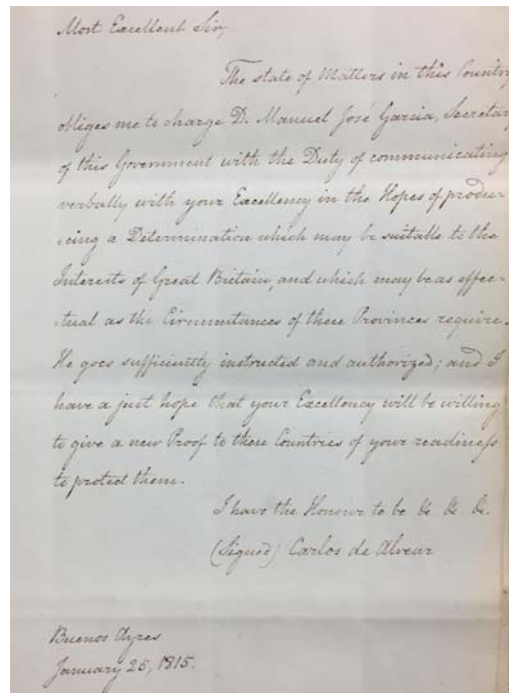 Most Excellent Sir,
The state of Matters in this Country
obliges me to charge D. Manuel José Garcia, Secretary
of this Government with the Duty of communicating
verbally with your Excellency in the Hopes of produ-
-cing a Determination which may be suitable to the
Interests of Great Britain, and which may be as effec-
-tual as the Circumstances of these Provinces require.
He goes sufficiently instructed and authorized; and I
have a just hope that your Excellency will be willing
to give a new Proof to these Countries of your readiness
to protect them.
I have the Honour to be &c. &c. &c.
(Signed) Carlos de Alvear
Buenos Ayres
January 25, 1815.